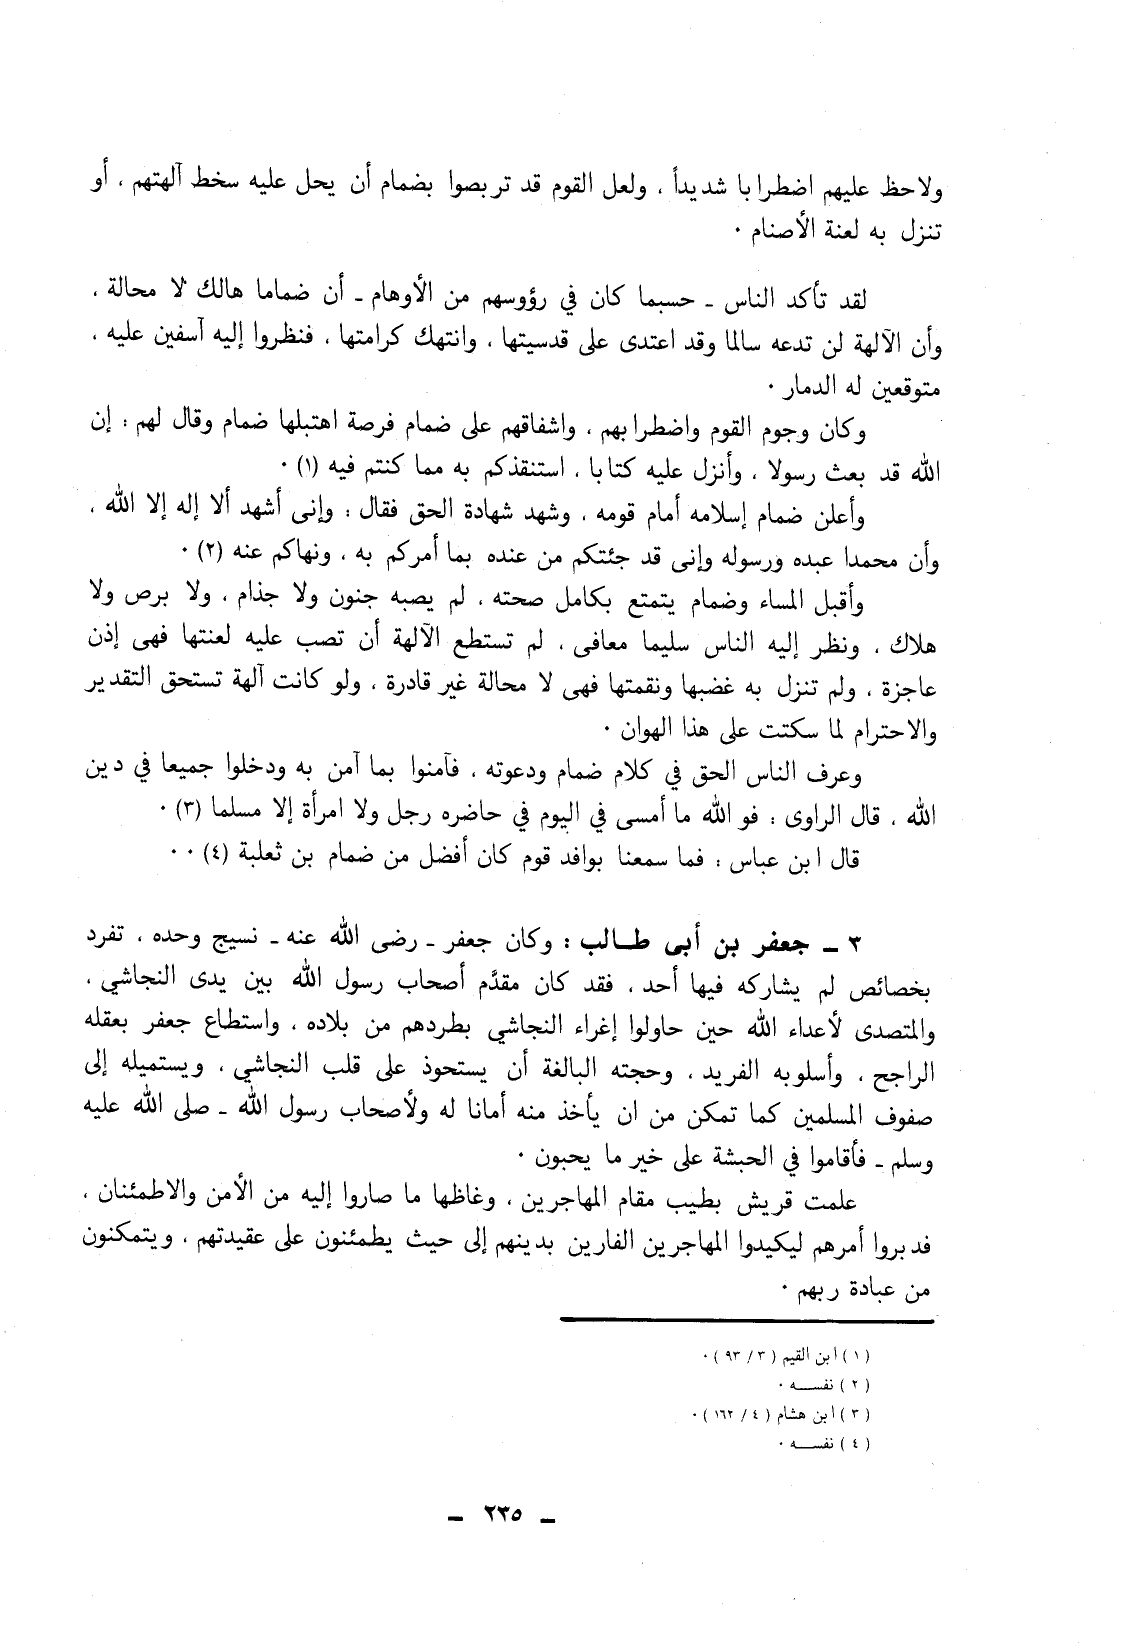 ولاحظ عليهم اضطرابا شديداً ، ولعل القوم قد تربصوا بضمام أن يحل عليه سخط آلهتهم ، أو
تنزل به لعنة الأصنام ٠
لقد تأكد الناس ـ حسبما كان في رؤوسهم من الأوهام ـ أن ضماما هالك لا محالة ،
وأن الآلهة لن تدعه سالما وقد اعتدى على قدسيتها ، وانتهك كرامتها ، فنظروا إليه آسفين عليه ،
متوقعين له الدمار ٠
وكان وجوم القوم واضطرابهم ، واشفاقهم على ضمام فرصة اهتبلها ضمام وقال لهم : إن
الله قد بعث رسولا ، وأنزل عليه كتابا ، استنقذكم به مما كنتم فيه (١) ٠
وأعلن ضمام إسلامه أمام قومه ، وشهد شهادة الحق فقال : وإنى أشهد ألا إله إلا الله ،
وأن محمدا عبده ورسوله وإنى قد جئتكم من عنده بما أمركم به ، ونهاكم عنه (٢) ٠
وأقبل المساء وضمام يتمتع بكامل صحته ، لم يصبه جنون ولا جذام ، ولا برص ولا
هلاك ، ونظر إليه الناس سليما معافى ، لم تستطع الآلهة أن تصب عليه لعنتها فهى إذن
عاجزة ، ولم تنزل به غضبها ونقمتها فهى لا محالة غير قادرة ، ولو كانت آلهة تستحق التقدير
والاحترام لما سكتت على هذا الهوان ٠
وعرف الناس الحق في كلام ضمام ودعوته ، فآمنوا بما آمن به ودخلوا جميعا في دين
الله ، قال الراوى : فو الله ما أمسى في اليوم في حاضره رجل ولا امرأة إلا مسلما (٣) ٠
قال ابن عباس : فما سمعنا بوافد قوم كان أفضل من ضمام بن ثعلبة (٤) ٠ ٠
٣ ـ جعفر بن أبى طــالب : وكان جعفر ـ رضى الله عنه ـ نسيج وحده ، تفرد
بخصائص لم يشاركه فيها أحد ، فقد كان مقدَّم أصحاب رسول الله بين يدى النجاشي ،
والمتصدى لأعداء الله حين حاولوا إغراء النجاشي بطردهم من بلاده ، واستطاع جعفر بعقله
الراجح ، وأسلوبه الفريد ، وحجته البالغة أن يستحوذ على قلب النجاشي ، ويستميله إلى
صفوف المسلمين كما تمكن من ان يأخذ منه أمانا له ولأصحاب رسول الله ـ صلى الله عليه
وسلم ـ فأقاموا في الحبشة على خير ما يحبون ٠
علمت قريش بطيب مقام المهاجرين ، وغاظها ما صاروا إليه من الأمن والاطمئنان ،
فدبروا أمرهم ليكيدوا المهاجرين الفارين بدينهم إلى حيث يطمئنون على عقيدتهم ، ويتمكنون
من عبادة ربهم ٠
(١) ابن القيم (٣/ ٩٣) ٠
(٢) نفســه ٠
(٣) ابن هشام (٤/ ١٦٢) ٠
(٤) نفســه ٠
ـ ٢٣٥ ـ